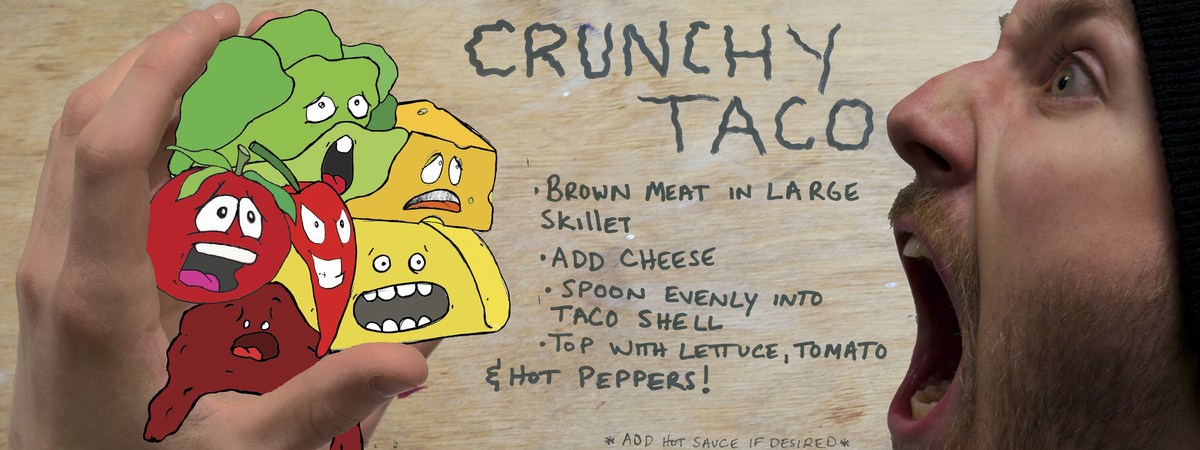 CRUNCHY
TACO
• BROWN MEAT IN LARGE
SKILLET
• ADD CHEESE
• SPOON EVENLY INTO
TACO SHELL
• TOP WITH LETTUCE, TOMATO
& HOT PEPPERS!
* ADD HOT SAUCE IF DESIRED *